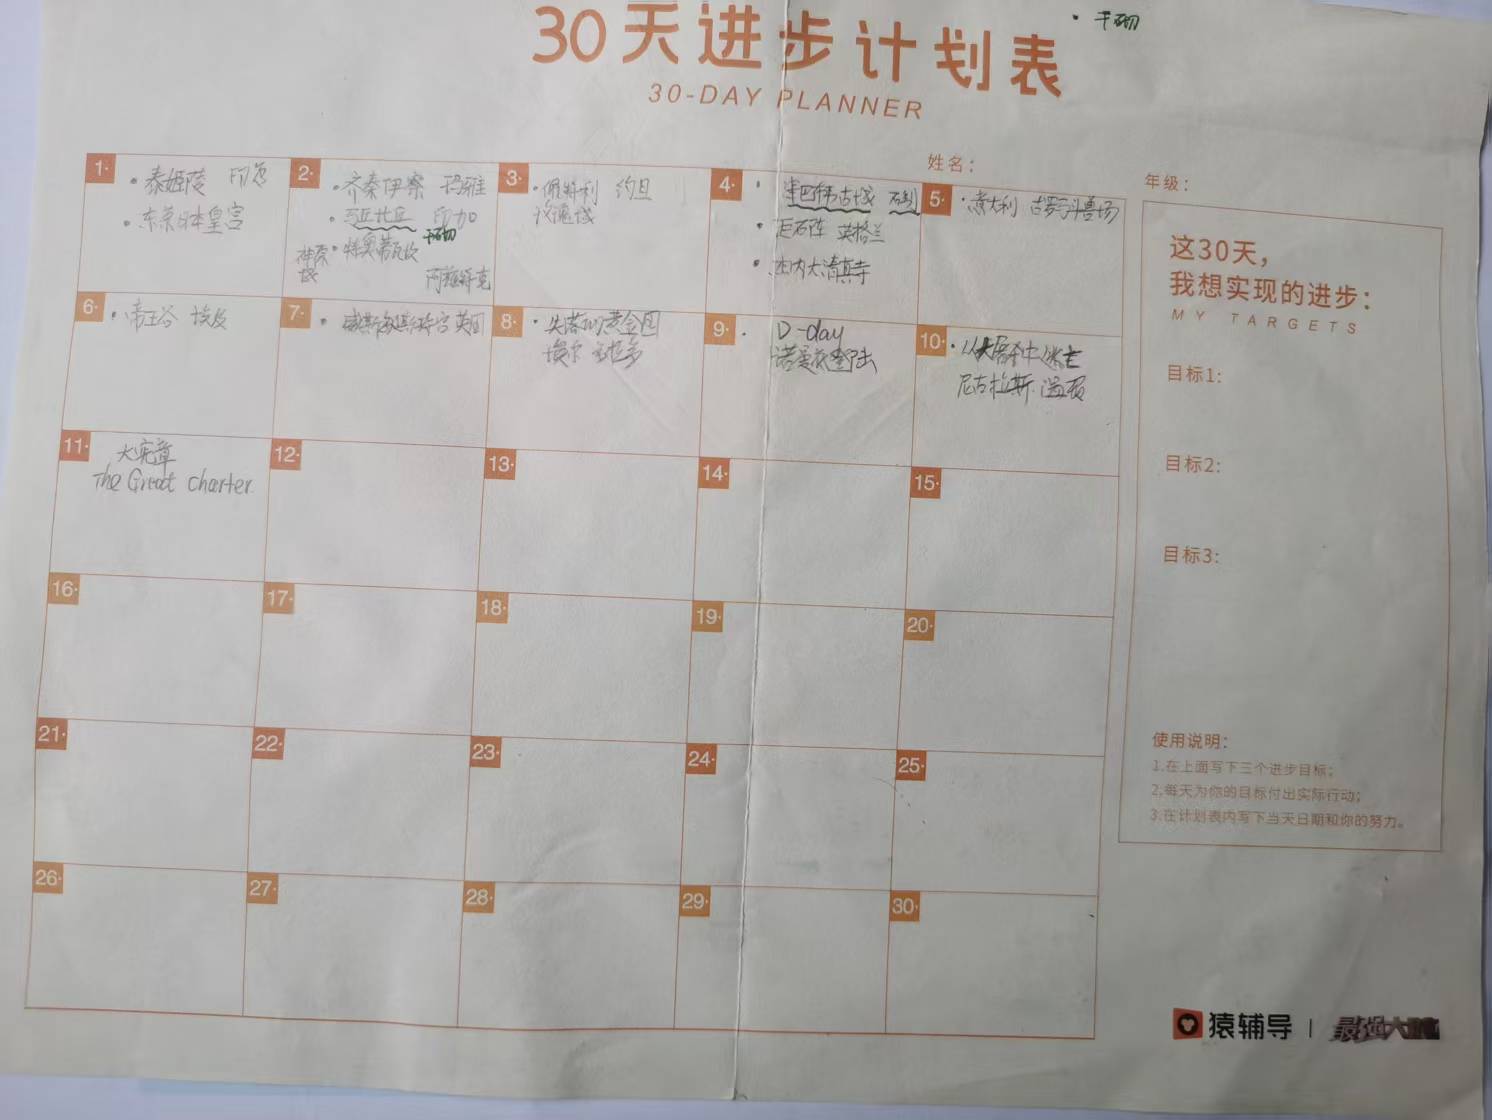 干砌
30天进步计划表
30-DAY PLANNER
姓名：
年级：
1· ·泰姬陵 印度
·东京日本皇宫
2· ·齐秦伊察 玛雅
·马丘比丘 印加
干砌
·特奥蒂瓦坎
阿兹特克
3· ·佩特利 约旦
4· ·津巴布韦古城 石砌
·巨石阵 英格兰
·大清真寺
5· ·意大利 古罗马斗兽场
6· ·帝王谷 埃及
7· ·威斯敏斯特宫 英国
8· ·失落的黄金国
埃尔
9· · D-day
诺曼底登陆
10·
尼古拉斯·温顿
11· 大宪章
The Great charter
12·
13·
14·
15·
16·
17·
18·
19·
20·
21·
22·
23·
24·
25·
26·
27·
28·
29·
30·
这30天，
我想实现的进步：
MY TARGETS
目标1:
目标2:
目标3:
使用说明：
1.在上面写下三个进步目标；
2.每天为你的目标付出实际行动；
3.在计划表内写下当天日期和你的努力。
猿辅导 | 最强大脑